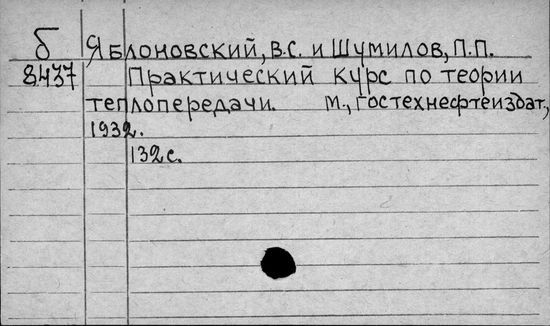 б Яблоновский, В.С. и Шумилов, П.П.
8437 Практический курс по теории
теплопередачи. М., Гостехнефтеиздат,
1932.
132 с.